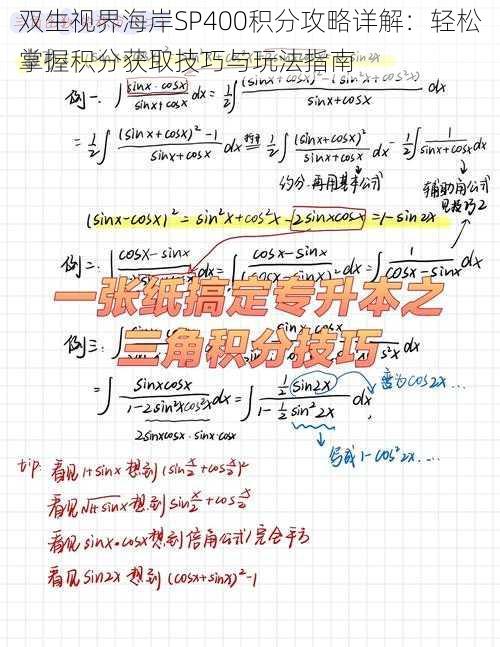 双生视界海岸SP400积分攻略详解：轻松
掌握积分获取技巧与玩法指南
例一、∫ sinx·cosx / sinx+cosx dx = 1/2 ∫ (sinx+cosx)²-(sin²x+cos²x)
= 1/2 ∫ (sinx+cosx)²-1 / sinx+cosx dx = 1/2 ∫ (sinx+cosx)² / sinx+cosx dx - 1/2 ∫ 1 / sinx+cosx dx
约分.再用基本公式
辅助角公式
见技巧2
(sinx-cosx)² = sin²x+cos²x-2sinxcosx = 1-sin2x
例二: ∫ cosx-sinx dx = ∫ cosx-sinx / (cosx-sinx)² dx = ∫ 1 / cosx-sinx
一张纸搞定专升本之
三角积分技巧
例三: ∫ sinx·cosx
= ∫ sinxcosx / 1-2sin²xcos²x dx = ∫ 1/2 sin2x / 1-1/2 sin²2x dx
变为cos2x...
2sinxcosx·sinx·cosx
写成1-cos²2x....
tip: 看见1+sinx想到(sin x/2+cos x/2)²
看见√1+sinx想到sin x/2+cos x/2
看见sinx·cosx想到倍角公式/完全平方
看见sin2x想到(cosx+sinx)²-1